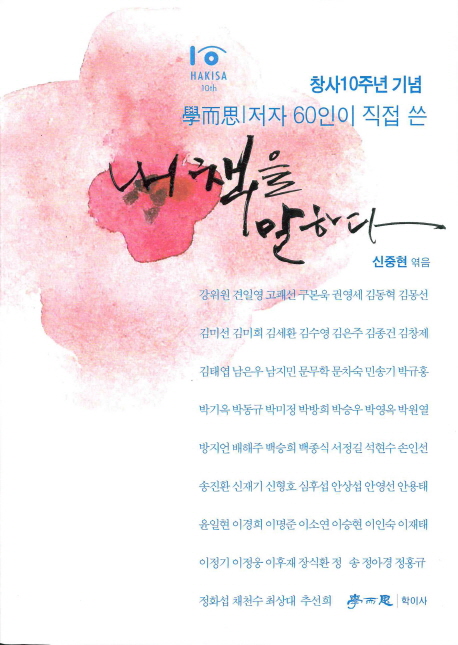 10
HAKISA
10th
창사10주년 기념
學而思|저자 60인이 직접 쓴
내 책을
말하다
신중현 엮음
강위원 견일영 고쾌선 구본욱 권영세 김동혁 김몽선
김미선 김미희 김세환 김수영 김은주 김종건 김창제
김태엽 남은우 남지민 문무학 문차숙 민송기 박규홍
박기옥 박동규 박미정 박방희 박승우 박영옥 박원열
방지언 배해주 백승희 백종식 서정길 석현수 손인선
송진환 신재기 신형호 심후섭 안상섭 안영선 안용태
윤일현 이경희 이명준 이소연 이승현 이인숙 이재태
이정기 이정웅 이후재 장식환 정 송 정아경 정홍규
정화섭 채천수 최상대 추선희 學而思 | 학이사